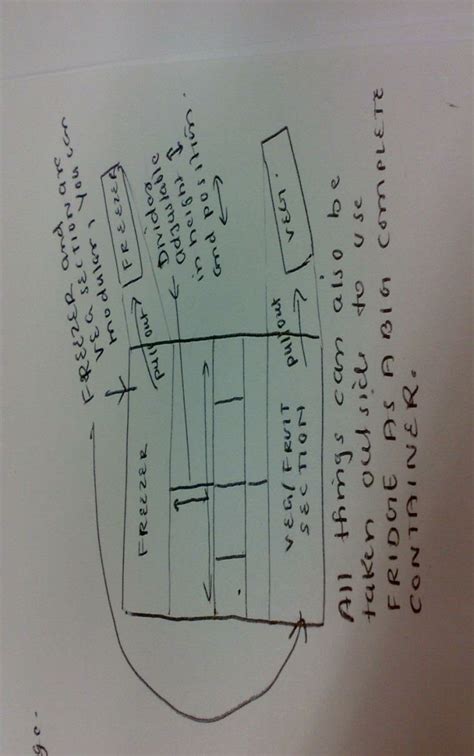 ge.
FREEZER and
VEG section are
modular, you can
FREEZER
pull out
FREEZER
Dividog
adjustable
in height
and position.
VEG/FRUIT
SECTION
pull out
VEG.
All things can also be
taken outside to use
FRIDGE AS A BIG COMPLETE
CONTAINER.